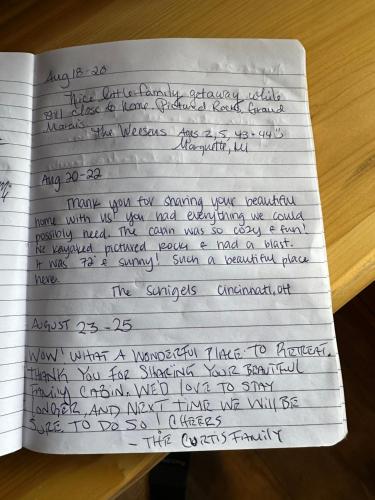 Aug 18-20
Nice little family getaway while
still close to home. Pictured Rocks, Grand
Marais.
The Weesens Ages 2, 5, 43 + 44
Marquette, MI
Aug 20-22
Thank you for sharing your beautiful
home with us! you had everything we could
possibly need. The cabin was so cozy & fun!
We kayaked pictured rocks & had a blast.
it was 72° & sunny! Such a beautiful place
here.
The Schigels Cincinnati, OH
AUGUST 23-25
WOW! WHAT A WONDERFUL PLACE TO RETREAT.
THANK YOU FOR SHARING YOUR BEAUTIFUL
FAMILY CABIN. WE'D LOVE TO STAY
LONGER, AND NEXT TIME WE WILL BE
SURE TO DO SO! CHEERS
- THE CURTIS FAMILY